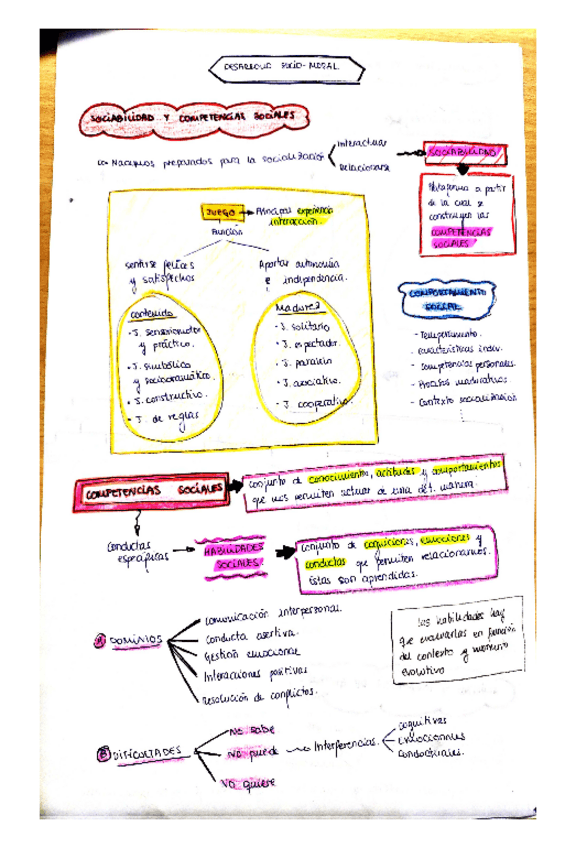 DESARROLLO SOCIO-MORAL
SOCIABILIDAD Y COMPETENCIAS SOCIALES
Nacemos preparados para la socialización
Interactuar
Relacionarse
SOCIABILIDAD
a partir
de la cual se
construyen las
COMPETENCIAS
SOCIALES
JUEGO
Principal experiencia
interacción.
FUNCIÓN
Sentirse felices
y satisfechos
Aportar autonomía
e independencia.
Contenido
·J. sensoriomotor
y práctico.
·J. simbólico
y sociodramático.
·J. constructivo.
·J. de reglas
Madurez
·J. solitario
·J. espectador.
·J. paralelo
·J. asociativo.
·J. cooperativo.
COMPORTAMIENTO
SOCIAL
- Temperamento.
- características indiv.
- competencias personales.
- Procesos madurativos
- Contexto socialización
COMPETENCIAS SOCIALES
conjunto de conocimientos, actitudes y comportamientos
que nos permiten actuar de una det. manera.
Conductas
específicas
HABILIDADES
SOCIALES
conjunto de cogniciones, emociones y
conductas que permiten relacionarnos.
Estas son aprendidas.
A DOMINIOS
comunicación interpersonal.
Conducta asertiva.
Gestión emocional
Interacciones positivas
Resolución de conflictos.
las habilidades hay
que evaluarlas en función
del contexto y momento
evolutivo
B DIFICULTADES
No sabe
No puede
No quiere
Interferencias.
Cognitivas
Emocionales
Conductuales.